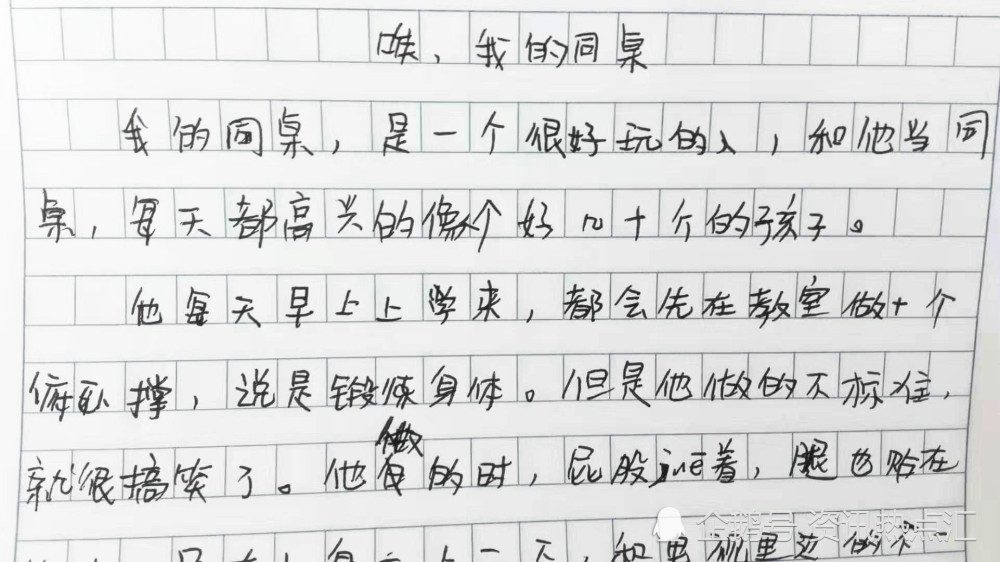 唉，我的同桌
我的同桌，是一个很好玩的人，和他当同
桌，每天都高兴的像个好几十个的孩子。
他每天早上上学来，都会先在教室做十个
俯卧撑，说是锻炼身体。但是他做的不标准，
就很搞笑了。他做的时，屁股juē着，腿也贴在
企鹅号 资讯热点汇